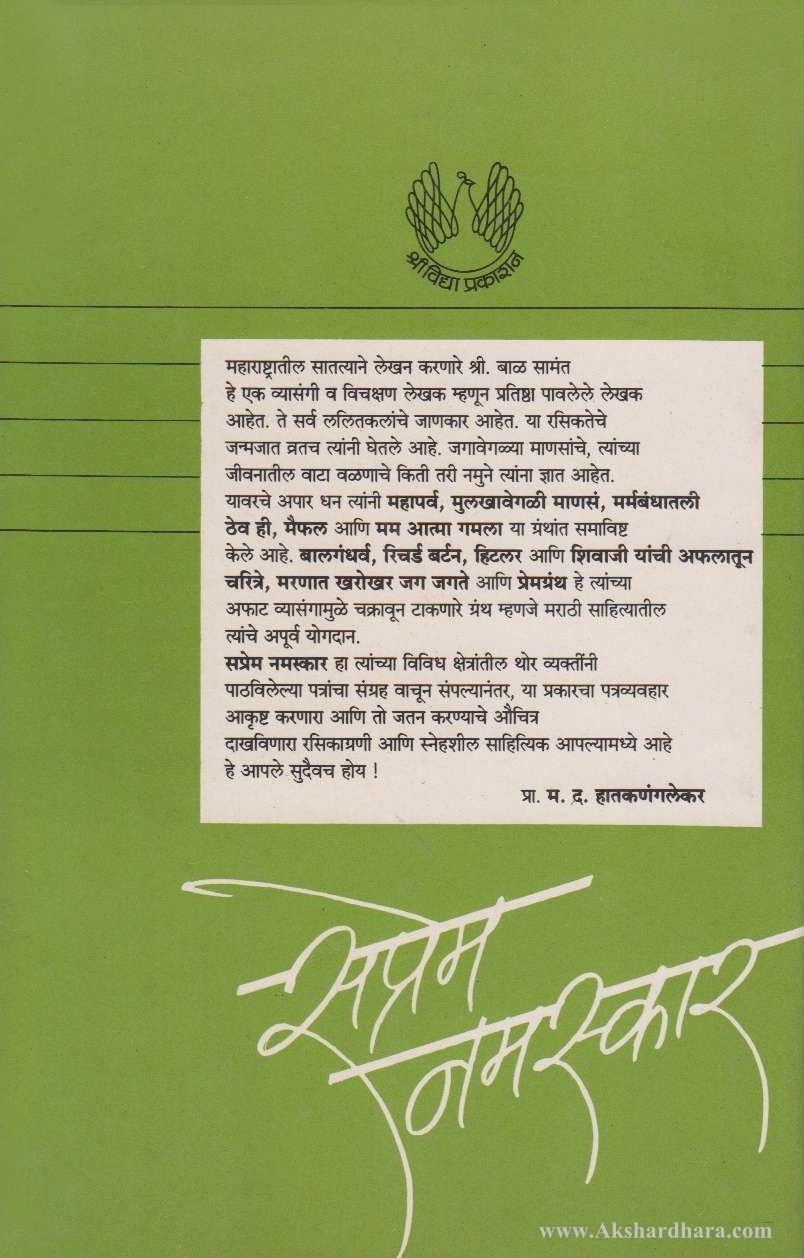 श्रीविद्या प्रकाशन
महाराष्ट्रातील सातत्याने लेखन करणारे श्री. बाळ सामंत
हे एक व्यासंगी व विचक्षण लेखक म्हणून प्रतिष्ठा पावलेले लेखक
आहेत. ते सर्व ललितकलांचे जाणकार आहेत. या रसिकतेचे
जन्मजात व्रतच त्यांनी घेतले आहे. जगावेगळ्या माणसांचे, त्यांच्या
जीवनातील वाटा वळणाचे किती तरी नमुने त्यांना ज्ञात आहेत.
यावरचे अपार धन त्यांनी महापर्व, मुलखावेगळी माणसं, मर्मबंधातली
ठेव ही, मैफल आणि मम आत्मा गमला या ग्रंथांत समाविष्ट
केले आहे. बालगंधर्व, रिचर्ड बर्टन, हिटलर आणि शिवाजी यांची अफलातून
चरित्रे, मरणात खरोखर जग जगते आणि प्रेमग्रंथ हे त्यांच्या
अफाट व्यासंगामुळे चक्रावून टाकणारे ग्रंथ म्हणजे मराठी साहित्यातील
त्यांचे अपूर्व योगदान.
सप्रेम नमस्कार हा त्यांच्या विविध क्षेत्रांतील थोर व्यक्तींनी
पाठविलेल्या पत्रांचा संग्रह वाचून संपल्यानंतर, या प्रकारचा पत्रव्यवहार
आकृष्ट करणारा आणि तो जतन करण्याचे औचित्र
दाखविणारा रसिकाग्रणी आणि स्नेहशील साहित्यिक आपल्यामध्ये आहे
हे आपले सुदैवच होय !
प्रा. म. द. हातकणंगलेकर
सप्रेम
नमस्कार
www.Akshardhara.com